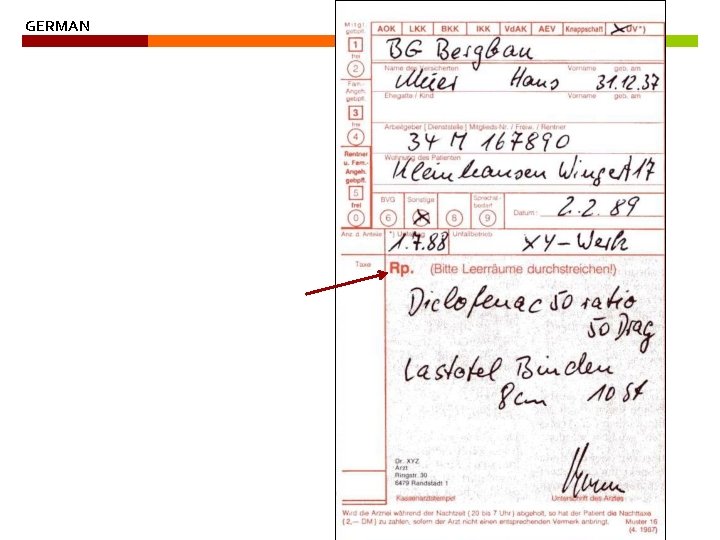 GERMAN
Mitgl. gebpfl.
AOK LKK BKK IKK VdAK AEV Knappschaft UV*)
1
BG Bergbau
frei
2
Name des Versicherten Vorname geb. am
Meier Hans 31.12.37
Fam.- Angeh. gebpfl.
Ehegatte / Kind Vorname geb. am
3
frei
4
Arbeitgeber [ Dienststelle ] Mitglieds-Nr. / Freiw. / Rentner
34 M 167890
Rentner u. Fam.- Angeh. gebpfl.
Wohnung des Patienten
Kleinhausen Wingert 17
5
frei
0
BVG Sonstige Sprechst.- bedarf
6 8 9
Datum: 2.2.89
Anz. d. Anteile *) Unfalltag Unfallbetrieb
1.7.88 XY-Werk
Taxe
Rp. (Bitte Leerräume durchstreichen!)
Diclofenac 50 ratio
50 Drag
Lastotel Binden
8cm 10 St
Dr. XYZ
Arzt
Ringstr. 30
6479 Randstadt 1
Kassenarztstempel Unterschrift des Arztes
Wird die Arznei während der Nachtzeit ( 20 bis 7 Uhr ) abgeholt, so hat der Patient die Nachttaxe
( 2,— DM ) zu zahlen, sofern der Arzt nicht einen entsprechenden Vermerk anbringt. Muster 16
(4. 1987)